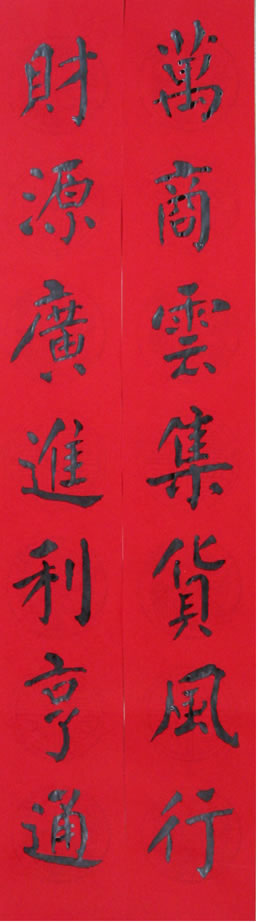 萬商雲集貨風行
財源廣進利亨通